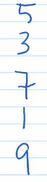 5
3
7
1
9